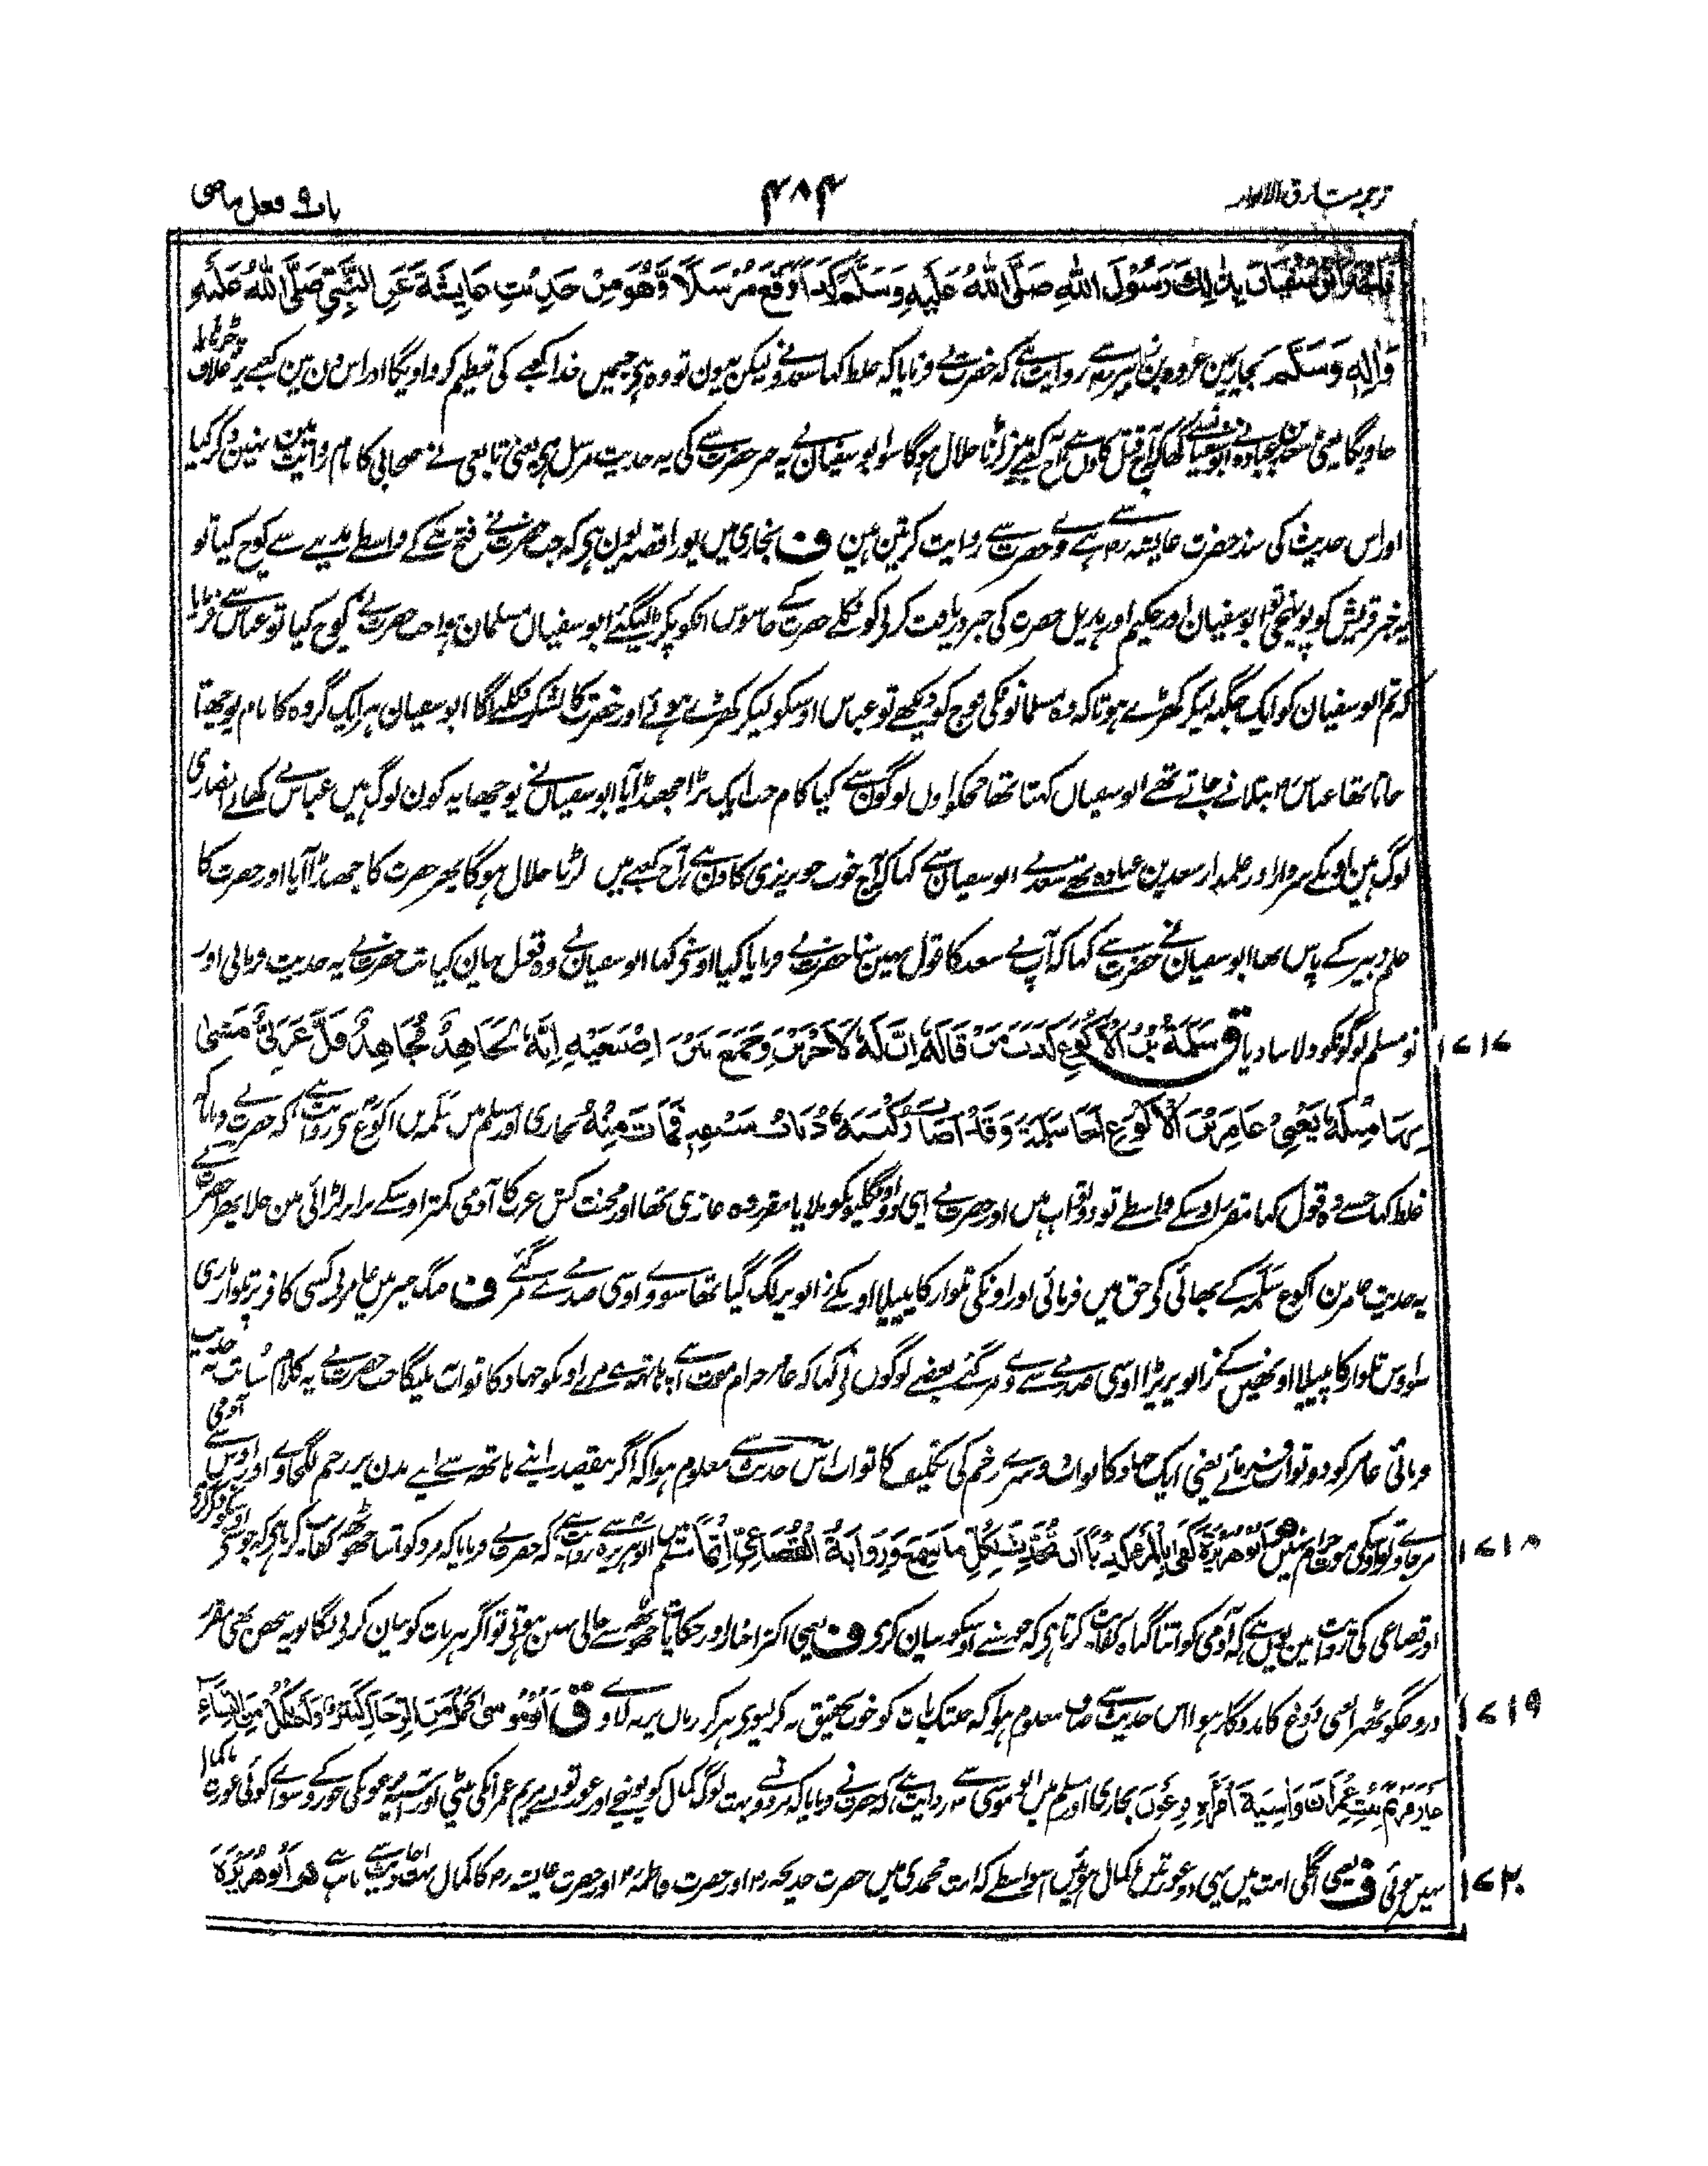 ترجمہ مشارق الانوار
۴۸۴
باب ۹ فعل ماضی
بِذٰلِكَ رَسُوْلَ اللّٰهِ صَلَّى اللّٰهُ عَلَيْهِ وَسَلَّمَ كَذَا وَقَعَ مُرْسَلًا وَّهُوَ مِنْ حَدِيْثِ عَايِشَةَ عَنِ النَّبِيِّ صَلَّى اللّٰهُ عَلَيْهِ
وَاٰلِهٖ وَسَلَّمَ بخاری مین عروہ بن زبیر سے روایت ہے کہ حضرت نے فرمایا کہ غلط کہا سعد نے ولیکن یہون تو وہ ہی جسمیں خدا کعبے کی تعظیم کرواویگا اور اس دن مین کعبے پر غلاف
جاویگا یعنی سعد بن عبادہ نے ابوسفیان سے کہا کہ آج قتل کا دن ہے آج کعبے میں لڑنا حلال ہوگا سو ابوسفیان نے یہ خبر حضرت سے کی یہ حدیث مرسل ہی یعنی تابعی نے صحابی کا نام روایت مین نہین ذکر کیا
اور اس حدیث کی سند حضرت عایشہ رض سے ہے وے حضرت سے روایت کرتین ہین ف بخاری میں پورا قصہ یون ہی کہ جب حضرت نے فتح مکے کے واسطے مدینے سے کوچ کیا تو
یہ خبر قریش کو پونہچی تو ابوسفیان اور حکیم اور بدیل حضرت کی خبر دریافت کرنی کو نکلے حضرت کے جاسوس انکو پکڑ لیگئے ابوسفیان مسلمان ہوا جب حضرت نے کوچ کیا تو عباس سے فرمایا
کہ تم ابوسفیان کو ایک جگہہ لیکر کھڑے ہو تا کہ وہ مسلمانونکی فوج کو دیکھے تو عباس اوسکو لیکر کھڑے ہوئے اور حضرت کا لشکر نکلنے لگا ابوسفیان ہر ایک گروہ کا نام پوچھتا
جاتا تھا عباس رض بتلاتے جاتے تھے ابوسفیان کہتا تھا مجکو اون لوگون سے کیا کام جب ایک بڑا جھنڈا آیا ابوسفیان نے پوچھا یہ کون لوگ ہیں عباس نے کہا یے انصاری
لوگ ہین اونکے سردار اور علمدار سعد بن عبادہ تھے سعد نے ابوسفیان سے کہا کہ آج خوب خونریزی کا دن ہے آج کعبے میں لڑنا حلال ہوگا پھر حضرت کا جھنڈا آیا اور حضرت کا
علم زبیر کے پاس تھا ابوسفیان نے حضرت سے کہا کہ آپ نے سعد کا قول نہین سنا حضرت نے فرمایا کیا اوسنے کہا ابوسفیان نے وہ قول بیان کیا تب حضرت نے یہ حدیث فرمائی اور
۱۷۱۷ نومسلم لوگونکو دلاسا دیا ق سَلَمَةُ بْنُ الْاَكْوَعِ كَذَبَ مَنْ قَالَهٗ اِنَّ لَهٗ لَاَجْرَيْنِ وَجَمَعَ بَيْنَ اِصْبَعَيْهِ اِنَّهٗ لَجَاهِدٌ مُجَاهِدٌ قَلَّ عَرَبِيٌّ مَشٰى
بِهَا مِثْلَهٗ يَعْنِيْ عَامِرَ بْنَ الْاَكْوَعِ اَخَا سَلَمَةَ وَقَدْ اَصَابَ رُكْبَتَهٗ ذُبَابُ سَيْفِهٖ فَمَاتَ مِنْهُ بخاری اور مسلم میں سلمہ بن اکوع سے روایت ہے کہ حضرت نے فرمایا کہ
غلط کہا جسنے وہ قول کہا مقرر اوسکے واسطے تو دو ثواب ہیں اور حضرت نے اپنی دو اونگلیونکو ملایا مقرر وہ غازی تھا اور محنت کش عرب کا آدمی کمتر اوسکے برابر لڑائی مین چلا پھرا حضرت نے
یہ حدیث عامر بن اکوع سلمہ کے بھائی کی حق میں فرمائی اور اونکی تلوار کا پیپلا اونکے زانو پر لگ گیا تھا سو وے اوسی صدمے سے مر گئے ف جنگ خیبر میں عامر نی کسی کافر پر تلوار ماری
سو اوس تلوار کا پیپلا اونھیں کے زانو پر پڑا اوسی صدمے سے وے مر گئے بعضے لوگوں نی کہا کہ عامر حرام موت سے اپنے ہاتھ سے مرے اونکو جہاد کا ثواب نہ ملیگا جب حضرت نے یہ کلام سنا تب یہ حدیث
فرمائی عامر کو دو ثواب فرمائے یعنی ایک جہاد کا ثواب دوسرے زخم کی تکلیف کا ثواب اس حدیث سے معلوم ہوا کہ اگر بیقصد اپنے ہاتھ سے اپنے بدن پر زخم لگجاوے اور اوس سے آدمی
۱۷۱۸ مرجاوے تو اوسکی موت حرام نہین م اَبُوْ هُرَيْرَةَ كَفٰى بِالْمَرْءِ كَذِبًا اَنْ يُّحَدِّثَ بِكُلِّ مَا سَمِعَ وَرِوَايَةُ الْقُضَاعِيِّ اِثْمًا مسلم میں ابوہریرہ سے روایت ہے کہ حضرت نے فرمایا کہ مرد کو اتنا جھوٹھ کفایت کرتا ہی کہ جو سنے اوسکو ذکر کرے
اور قضاعی کی روایت مین یون ہے کہ آدمی کو اتنا گناہ کفایت کرتا ہی کہ جو سنے اوسکو بیان کری ف یعنی اکثر اخبار اور حکایات جھوٹھ سے خالی نہین ہوتی تو اگر ہر بات کو بیان کرنی لگا تو یہ شخص بھی مقرر
۱۷۱۹ دروغگو ٹھہرا یعنی دروغ کا مددگار ہوا اس حدیث سے صاف معلوم ہوا کہ جبتک بات کو خوب تحقیق نہ کر لیوی ہرگز زبان پر نہ لاوے ق اَبُوْ مُوْسٰى كَمُلَ مِنَ الرِّجَالِ كَثِيْرٌ وَلَمْ يَكْمُلْ مِنَ النِّسَاءِ
غَيْرُ مَرْيَمَ بِنْتِ عِمْرَانَ وَاٰسِيَةَ امْرَأَةِ فِرْعَوْنَ بخاری اور مسلم میں ابو موسی سے روایت ہے کہ حضرت نے فرمایا کہ مردونسے بہت لوگ کمال کو پونہچے اور عورتون سے مریم عمرانکی بیٹی اور آسیہ فرعونکی جورو کے سوا کوئی عورت باکمال
۱۷۲۰ نہیں ہوئی ف یعنی اگلی امت میں یہی دو عورتیں باکمال ہوئیں اسواسطے کہ امت محمدی میں حضرت خدیجہ رض اور حضرت فاطمہ رض اور حضرت عایشہ رض کا کمال احادیث سے ثابت ہے م اَبُوْ هُرَيْرَةَ